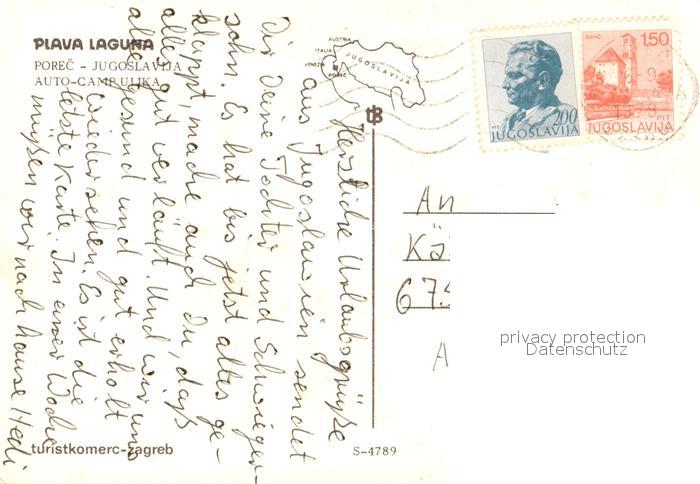 PLAVA LAGUNA
POREČ - JUGOSLAVIJA
AUTO-CAMP ULIKA
AUSTRIA
ITALIA
VENEZIA
POREČ
JUGOSLAVIJA
2.00
PTT
JUGOSLAVIJA
BIHAĆ
1,50
PTT
JUGOSLAVIJA
Herzliche Urlaubsgrüße
aus Jugoslawien sendet
Dir Deine Tochter und Schwieger-
sohn. Es hat bis jetzt alles ge-
klappt, mache auch Du, daß
alles gut verläuft. Und wir uns
alle gesund und gut erholt
wiedersehen. Es ist die
letzte Karte. In einer Woche
müßen wir nach hause Hedi
An
Kä
675
A
privacy protection
Datenschutz
turistkomerc-zagreb
S-4789